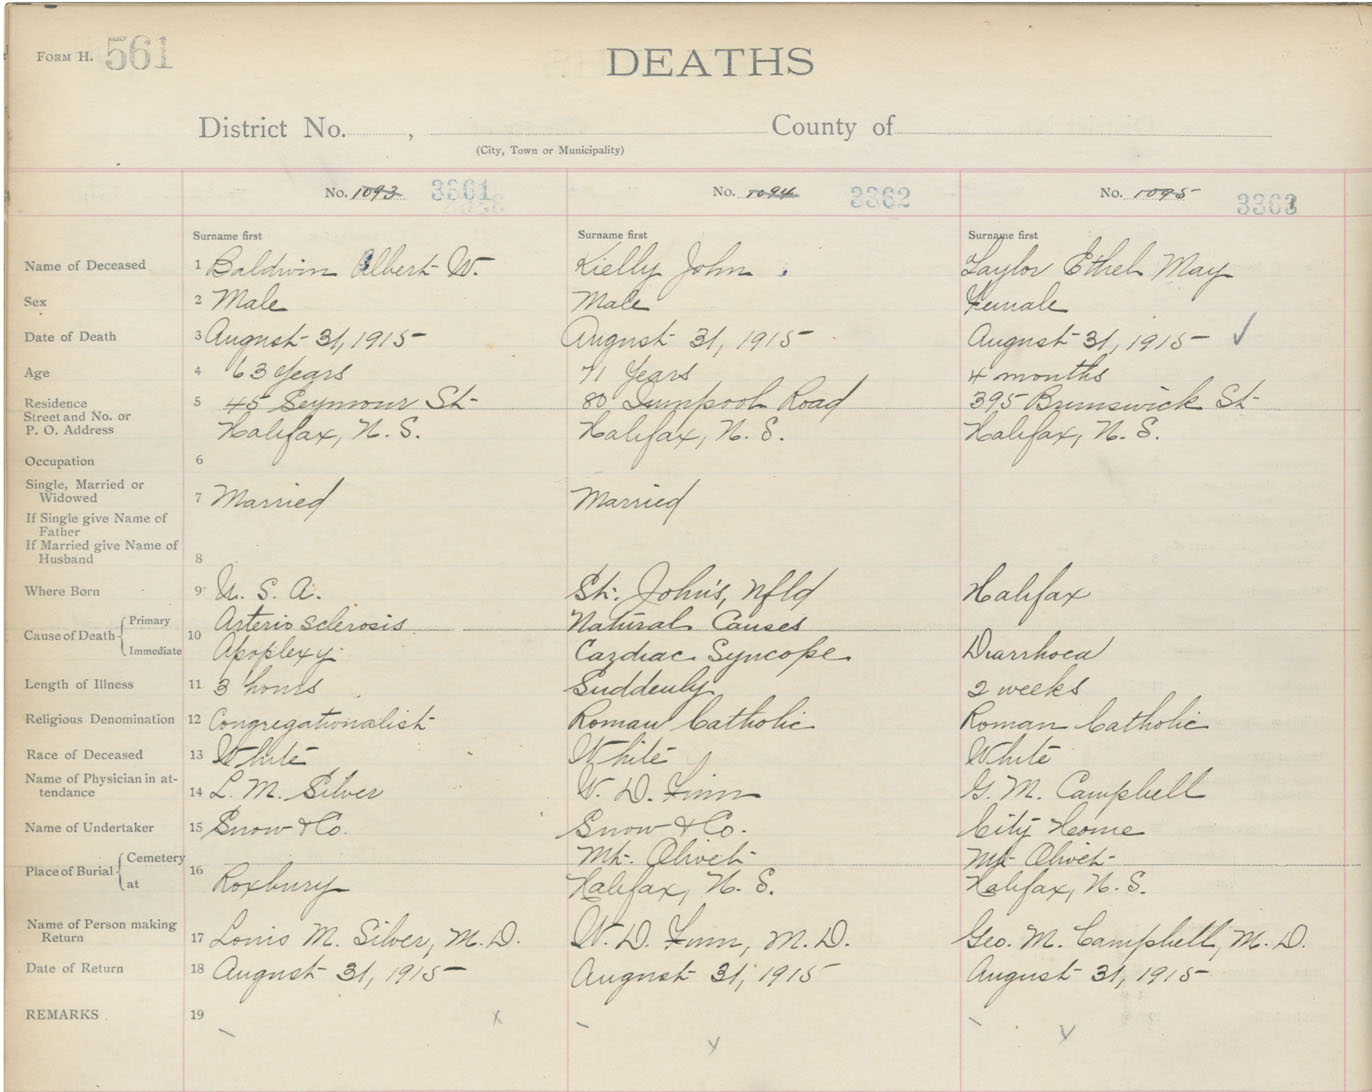 FORM H. 561
DEATHS
District No. , County of
(City, Town or Municipality)
No. 1093 3361 No. 1094 3362 No. 1095 3363
Surname first Surname first Surname first
Name of Deceased 1 Baldwin Albert W. Kielly John Taylor Ethel May
Sex 2 Male Male Female
Date of Death 3 August 31, 1915 August 31, 1915 August 31, 1915 ✓
Age 4 63 Years 71 Years 4 months
Residence 5 45 Seymour St 80 Road 395 Brunswick St
Street and No. or
P. O. Address Halifax, N. S. Halifax, N. S. Halifax, N. S.
Occupation 6
Single, Married or
Widowed 7 Married Married
If Single give Name of
Father
If Married give Name of
Husband 8
Where Born 9 U. S. A. St. John's, Nfld Halifax
Primary Arterio sclerosis Natural Causes
Cause of Death 10
Immediate Apoplexy Cardiac Syncope Diarrhoea
Length of Illness 11 3 hours Suddenly 2 weeks
Religious Denomination 12 Congregationalist Roman Catholic Roman Catholic
Race of Deceased 13 White White White
Name of Physician in at-
tendance 14 L. M. Silver W. D. Finn G. M. Campbell
Name of Undertaker 15 Snow & Co. Snow & Co. City Home
Cemetery Mt. Olivet Mt Olivet
Place of Burial 16
at Roxbury Halifax, N. S. Halifax, N. S.
Name of Person making
Return 17 Louis M. Silver, M. D. W. D. Finn, M. D. Geo. M. Campbell, M. D.
Date of Return 18 August 31, 1915 August 31, 1915 August 31, 1915
REMARKS 19